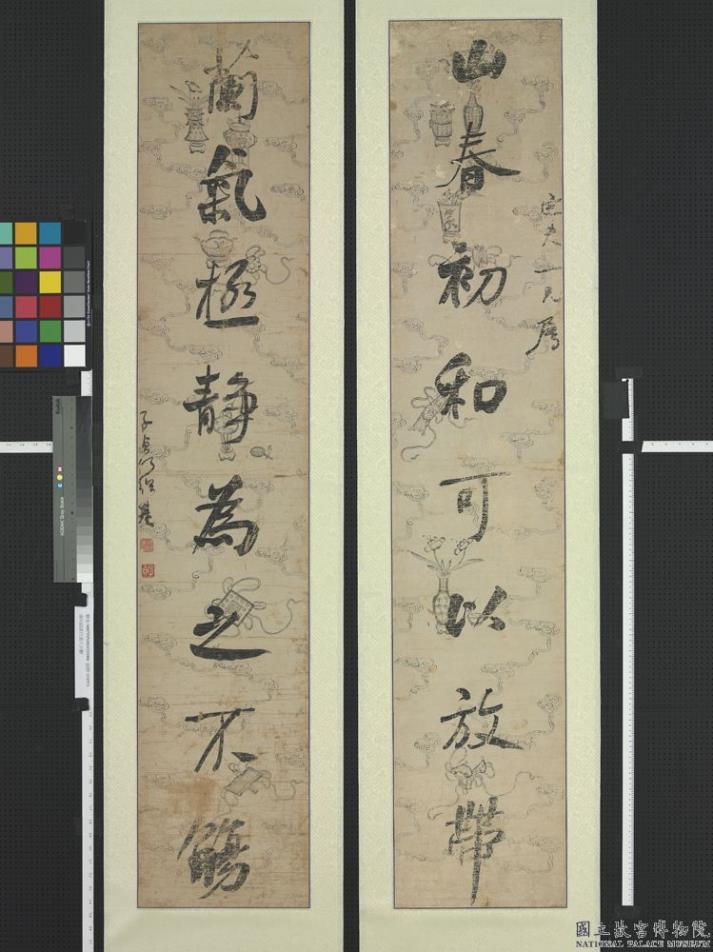 山春初和可以放帶
定夫一兄屬
蘭氣極靜為之不觴
子貞何紹基
國立故宮博物院
NATIONAL PALACE MUSEUM